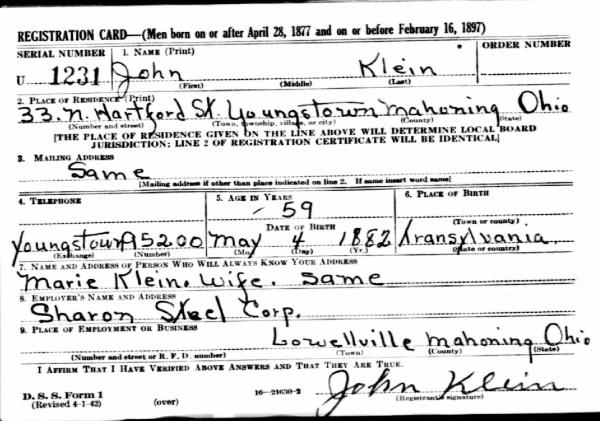 REGISTRATION CARD—(Men born on or after April 28, 1877 and on or before February 16, 1897)
SERIAL NUMBER 1. NAME (Print) ORDER NUMBER
U 1231 John Klein
(First) (Middle) (Last)
2. PLACE OF RESIDENCE (Print)
33. N. Hartford St. Youngstown Mahoning Ohio
(Number and street) (Town, township, village, or city) (County) (State)
[THE PLACE OF RESIDENCE GIVEN ON THE LINE ABOVE WILL DETERMINE LOCAL BOARD
JURISDICTION; LINE 2 OF REGISTRATION CERTIFICATE WILL BE IDENTICAL]
3. MAILING ADDRESS
Same
[Mailing address if other than place indicated on line 2. If same insert word same]
4. TELEPHONE 5. AGE IN YEARS 6. PLACE OF BIRTH
59
DATE OF BIRTH (Town or county)
Youngstown 95200 May 4 1882 Transylvania
(Exchange) (Number) (Mo.) (Day) (Yr.) (State or country)
7. NAME AND ADDRESS OF PERSON WHO WILL ALWAYS KNOW YOUR ADDRESS
Marie Klein. Wife. Same
8. EMPLOYER'S NAME AND ADDRESS
Sharon Steel Corp.
9. PLACE OF EMPLOYMENT OR BUSINESS
Lowellville Mahoning Ohio
(Number and street or R. F. D. number) (Town) (County) (State)
I AFFIRM THAT I HAVE VERIFIED ABOVE ANSWERS AND THAT THEY ARE TRUE.
John Klein
D. S. S. Form 1 16—21630-2 (Registrant's signature)
(Revised 4-1-42) (over)